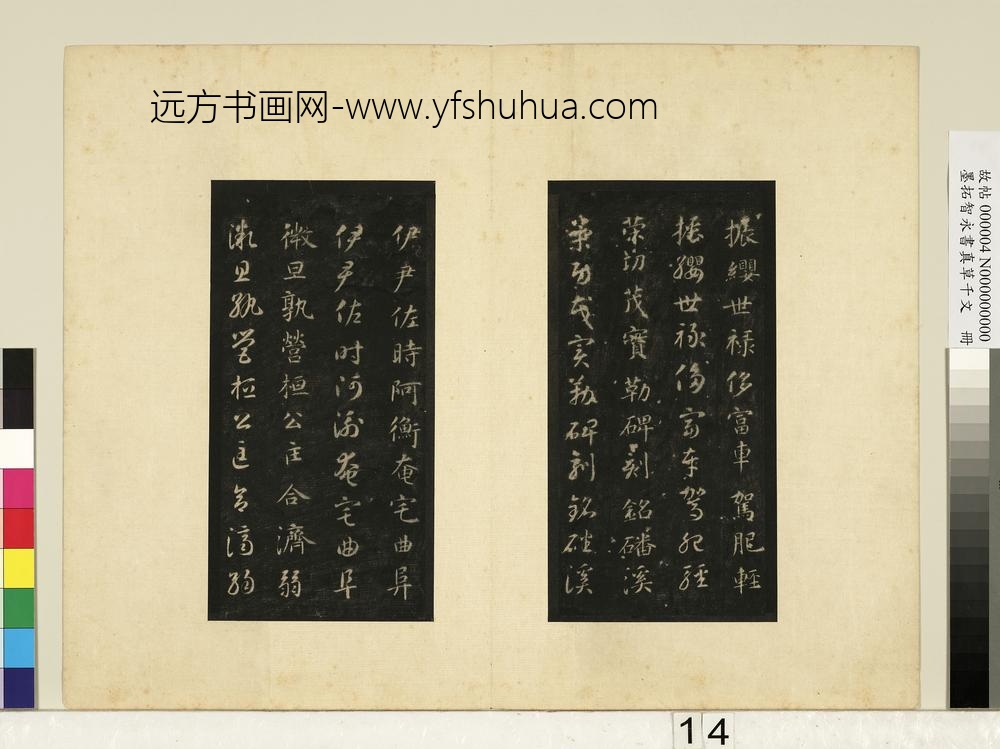 远方书画网-www.yfshuhua.com
振纓世禄侈富車駕肥輕
振纓世禄侈富車駕肥輕
策功茂實勒碑刻銘磻溪
策功茂實勒碑刻銘磻溪
伊尹佐時阿衡奄宅曲阜
伊尹佐時阿衡奄宅曲阜
微旦孰營桓公匡合濟弱
微旦孰營桓公匡合濟弱
故帖 000004 N000000000
墨拓智永書真草千文 冊
14